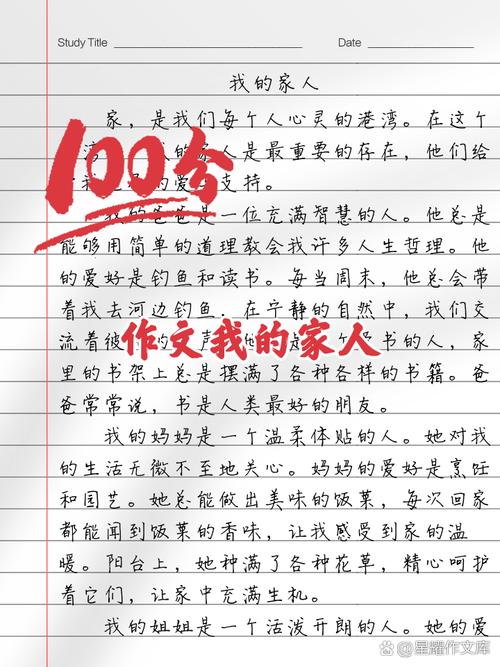 Study Title Date
我的家人
家，是我们每个人心灵的港湾。在这个
100分
人是最重要的存在，他们给
支持。
是一位充满智慧的人。他总是
能够用简单的道理教会我许多人生哲理。他
的爱好是钓鱼和读书。每当周末，他总会带
着我去河边钓鱼.在宁静的自然中，我们交
流着彼
书的人，家
作文我的家人
里的书架上总是摆满了各种各样的书籍。爸
爸常常说，书是人类最好的朋友。
我的妈妈是一个温柔体贴的人。她对我
的生活无微不至地关心。妈妈的爱好是烹饪
和园艺。她总能做出美味的饭菜，每次回家
都能闻到饭菜的香味，让我感受到家的温
暖。阳台上，她种满了各种花草，精心呵护
着它们，让家中充满生机。
我的姐姐是一个活泼开朗的人。她的爱
星耀作文库